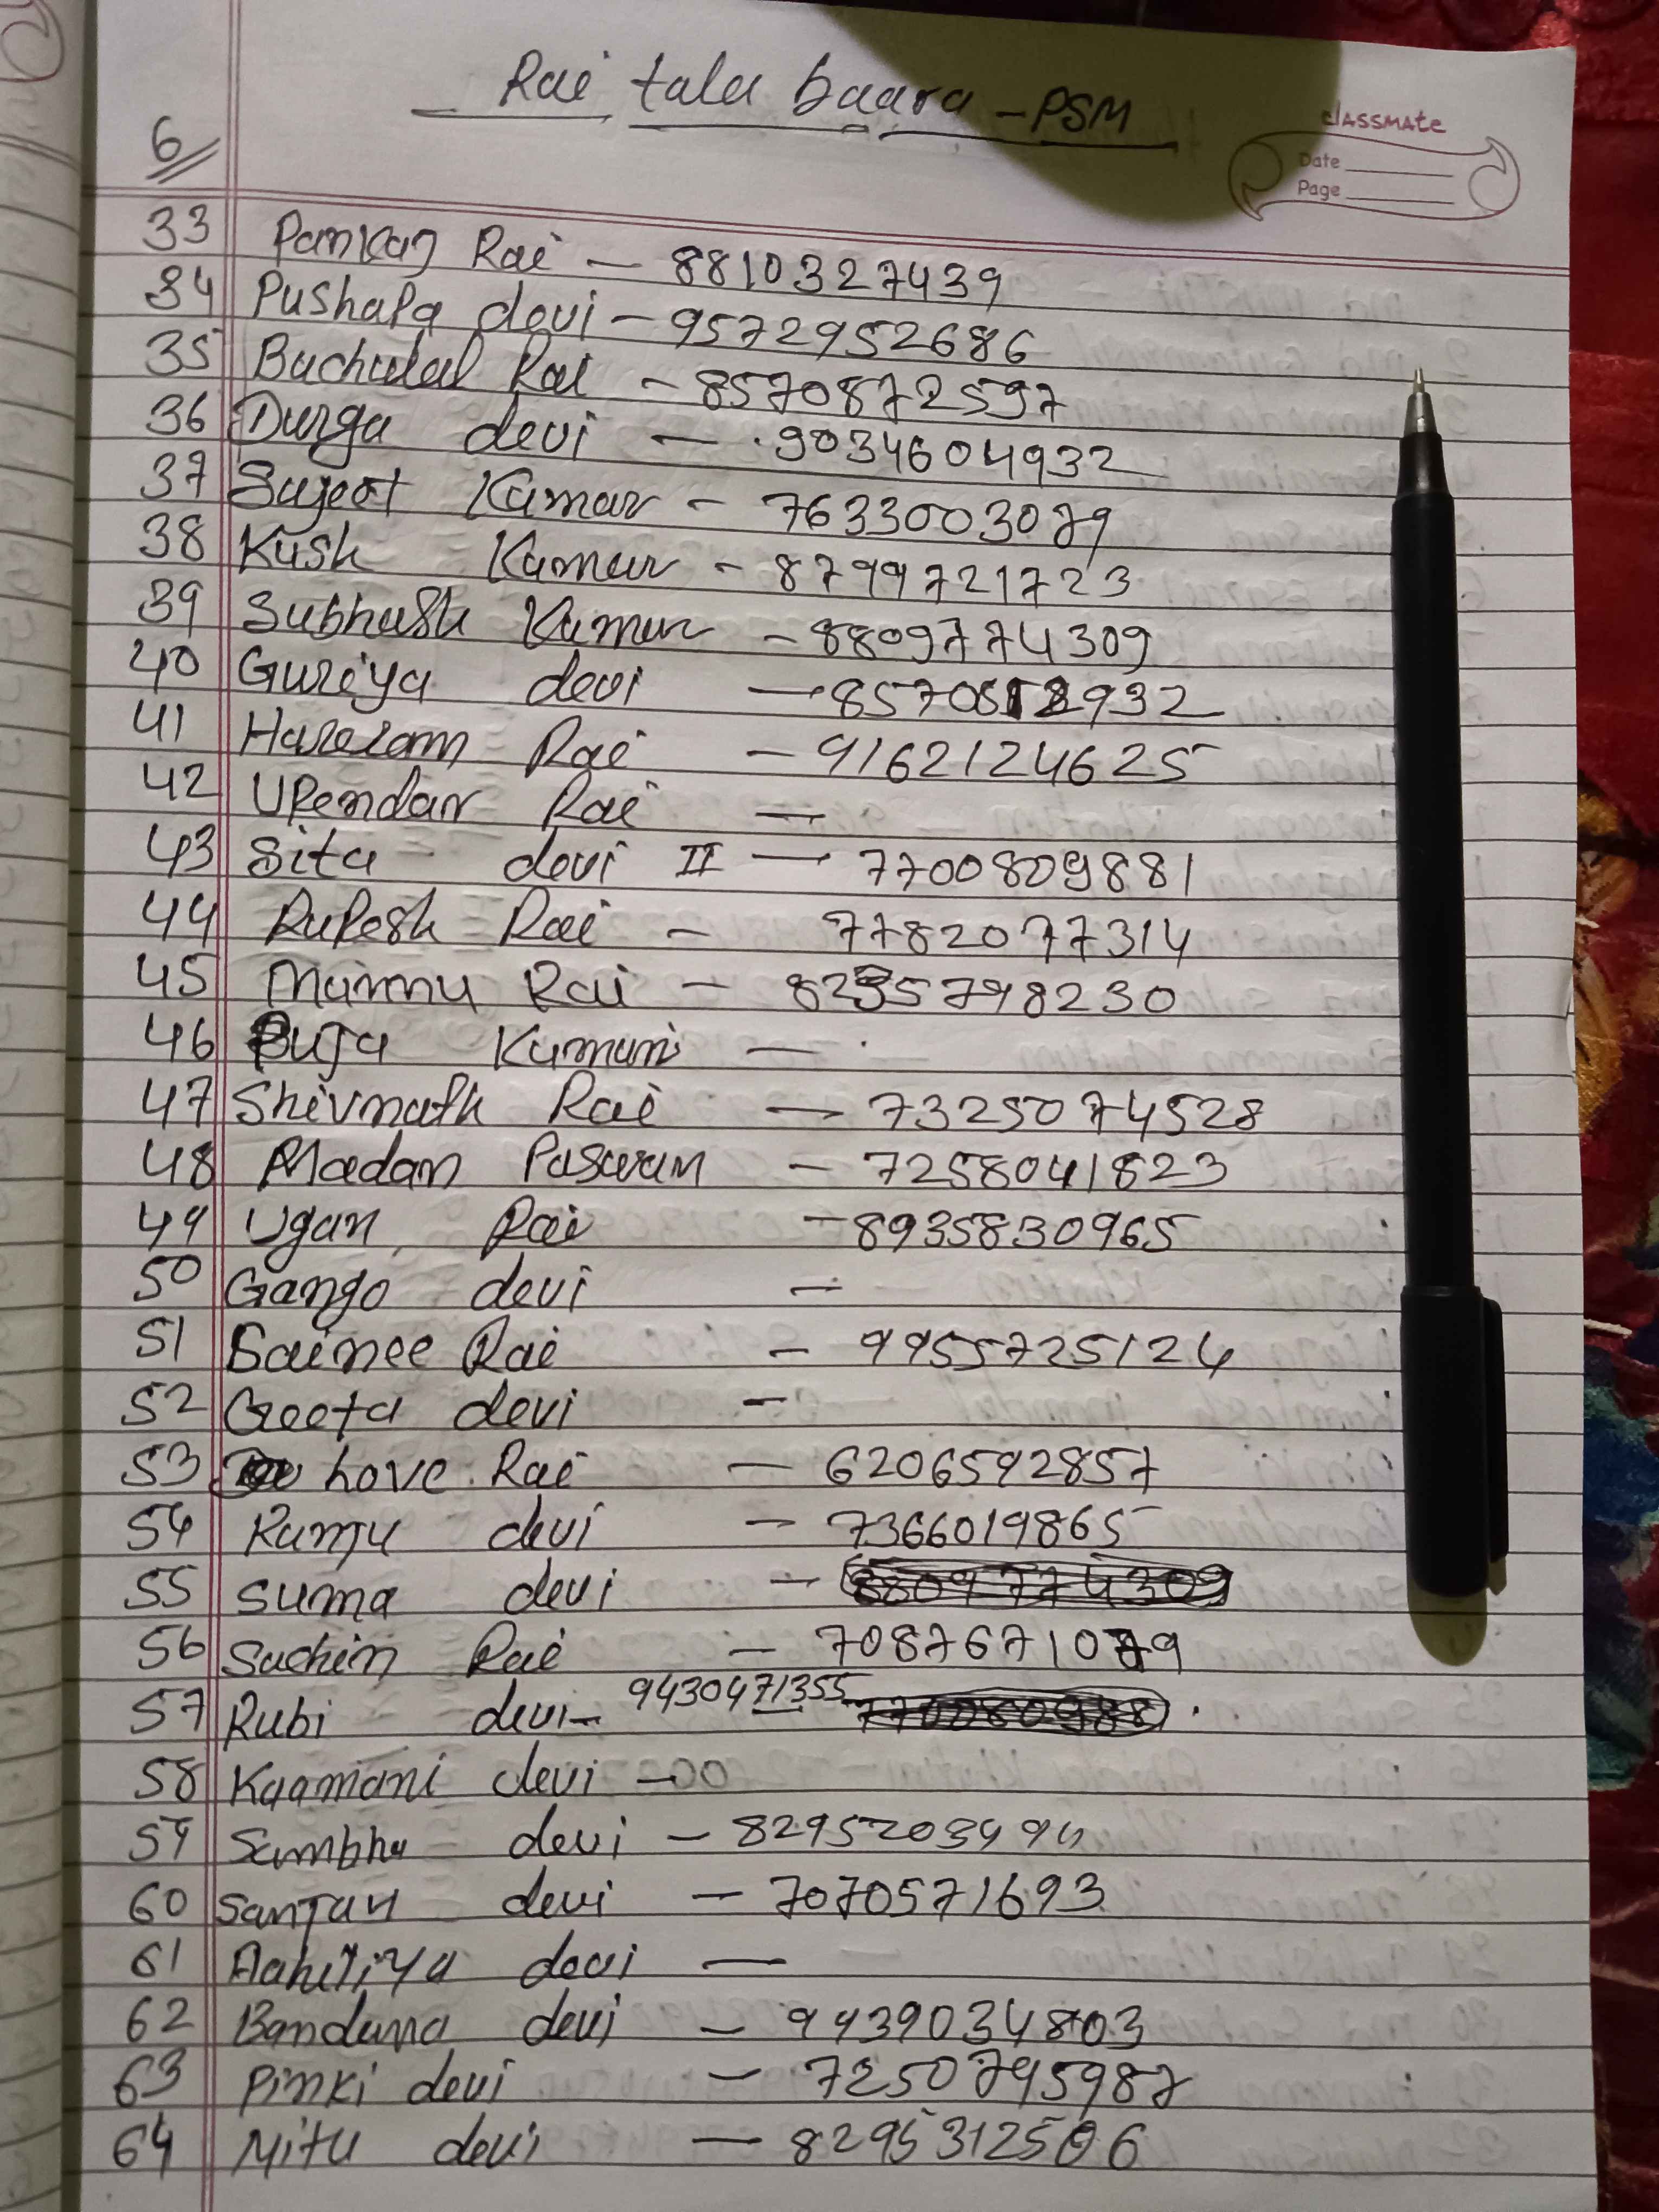 Rai tala baara - PSM
classmate
Date
Page
6
33 Pankaj Rai - 8810327439
34 Pushapa devi - 9572952686
35 Bachulal Rai - 8570872597
36 Durga devi - 9034604932
37 Sujeet Kumar - 7633003079
38 Kush Kumar - 8799721723
39 Subhash Kumar - 8809774309
40 Guriya devi -
41 Hareram Rai - 9162124625
42 Upendar Rai -
43 Sita devi II - 7700809881
44 Rupesh Rai - 7782077314
45 Mannu Rai - 8235798230
46 Puja Kumari -
47 Shivnath Rai - 7325074528
48 Madan Paswan - 7258041823
49 Ugan Rai - 8935830965
50 Gango devi -
51 Rai - 9955725124
52 Geeta devi -
53 Love Rai - 6206592857
54 Ranju devi - 7366019865
55 Suma devi - 8809774309
56 Sachin Rai - 7087671079
57 Rubi devi - 9430471355
58 Kaamani devi - 00
59 Sambhu devi -
60 Sanjan devi - 7070571693
61 devi -
62 Bandana devi - 9939034803
63 Pinki devi - 7250795987
64 Nitu devi - 8295312506